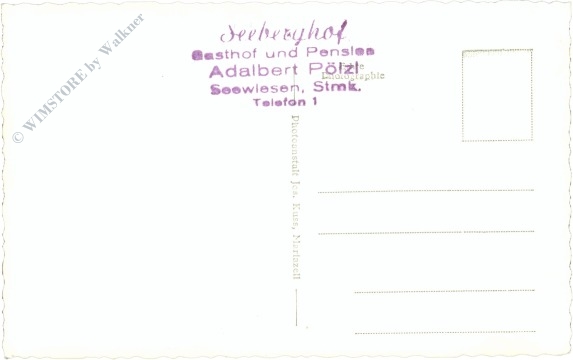 Seeberghof
Gasthof und Pension
Adalbert Pölzl
Seewiesen, Stmk.
Telefon 1
Echte
Photographie
Photoanstalt Jos. Kuss, Mariazell
© WIMSTORE by Walkner